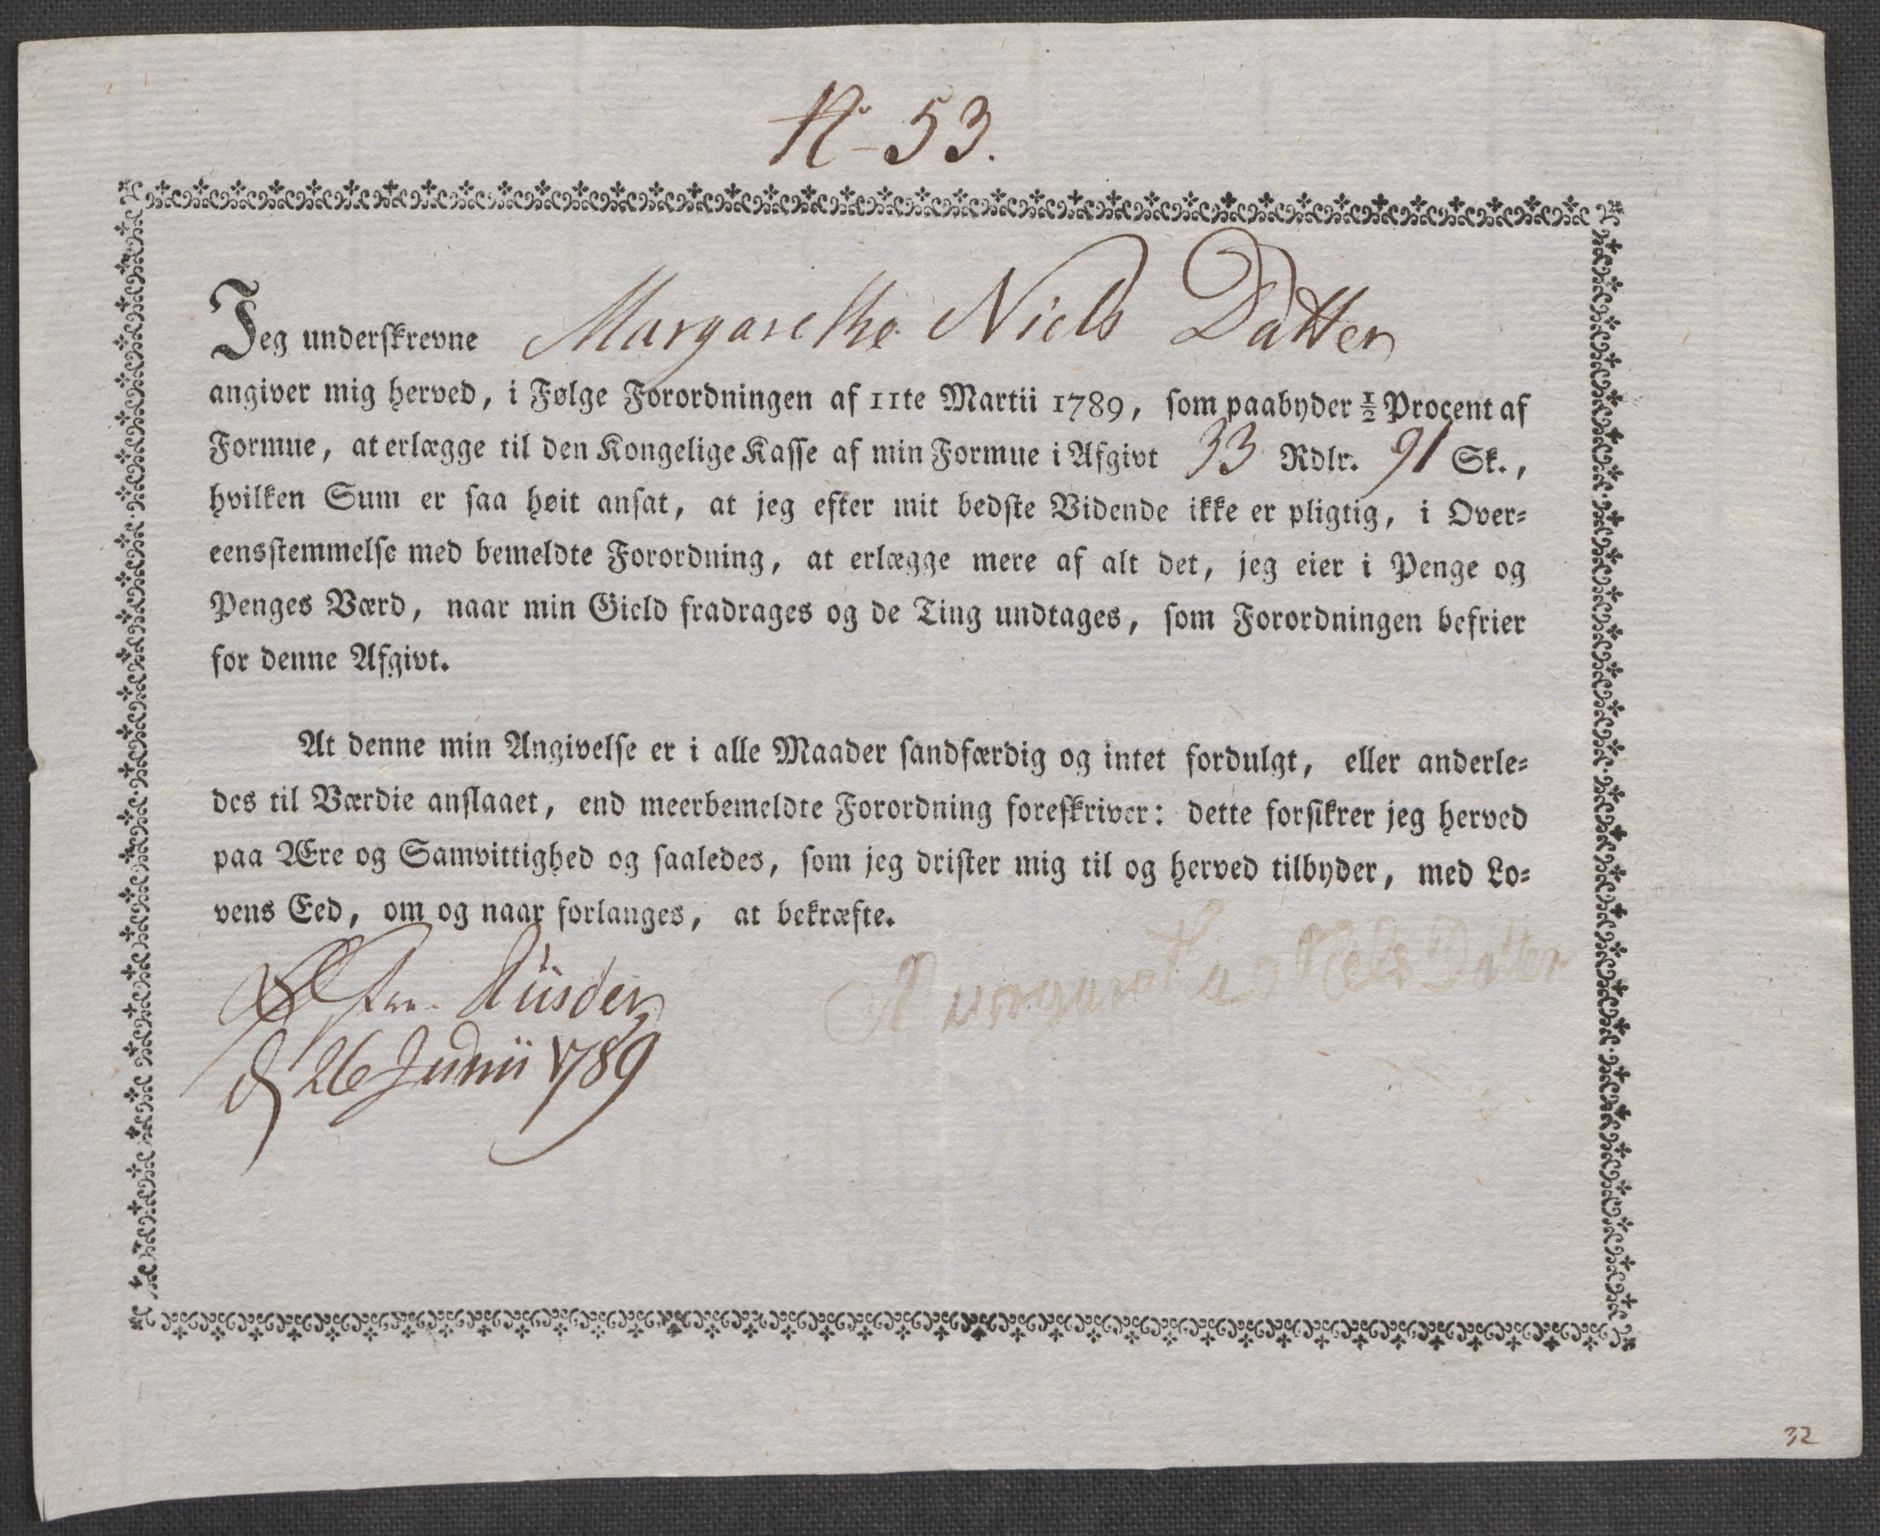 No 53.
Jeg underskrevne Margarethe Niels Datter
angiver mig herved, i Følge Forordningen af 11te Martii 1789, som paabyder ½ Procent af
Formue, at erlægge til den Kongelige Kasse af min Formue i Afgivt 33 Rdlr. 91 Sk.,
hvilken Sum er saa høit ansat, at jeg efter mit bedste Vidende ikke er pligtig, i Over-
eensstemmelse med bemeldte Forordning, at erlægge mere af alt det, jeg eier i Penge og
Penges Værd, naar min Gield fradrages og de Ting undtages, som Forordningen befrier
for denne Afgivt.
At denne min Angivelse er i alle Maader sandfærdig og intet fordulgt, eller anderle-
des til Værdie anslaaet, end meerbemeldte Forordning foreskriver: dette forsikrer jeg herved
paa Ære og Samvittighed og saaledes, som jeg drister mig til og herved tilbyder, med Lo-
vens Eed, om og naar forlanges, at bekræfte.
Riisöer
Margaretha Niels Datter
d 26 Junii 1789
32